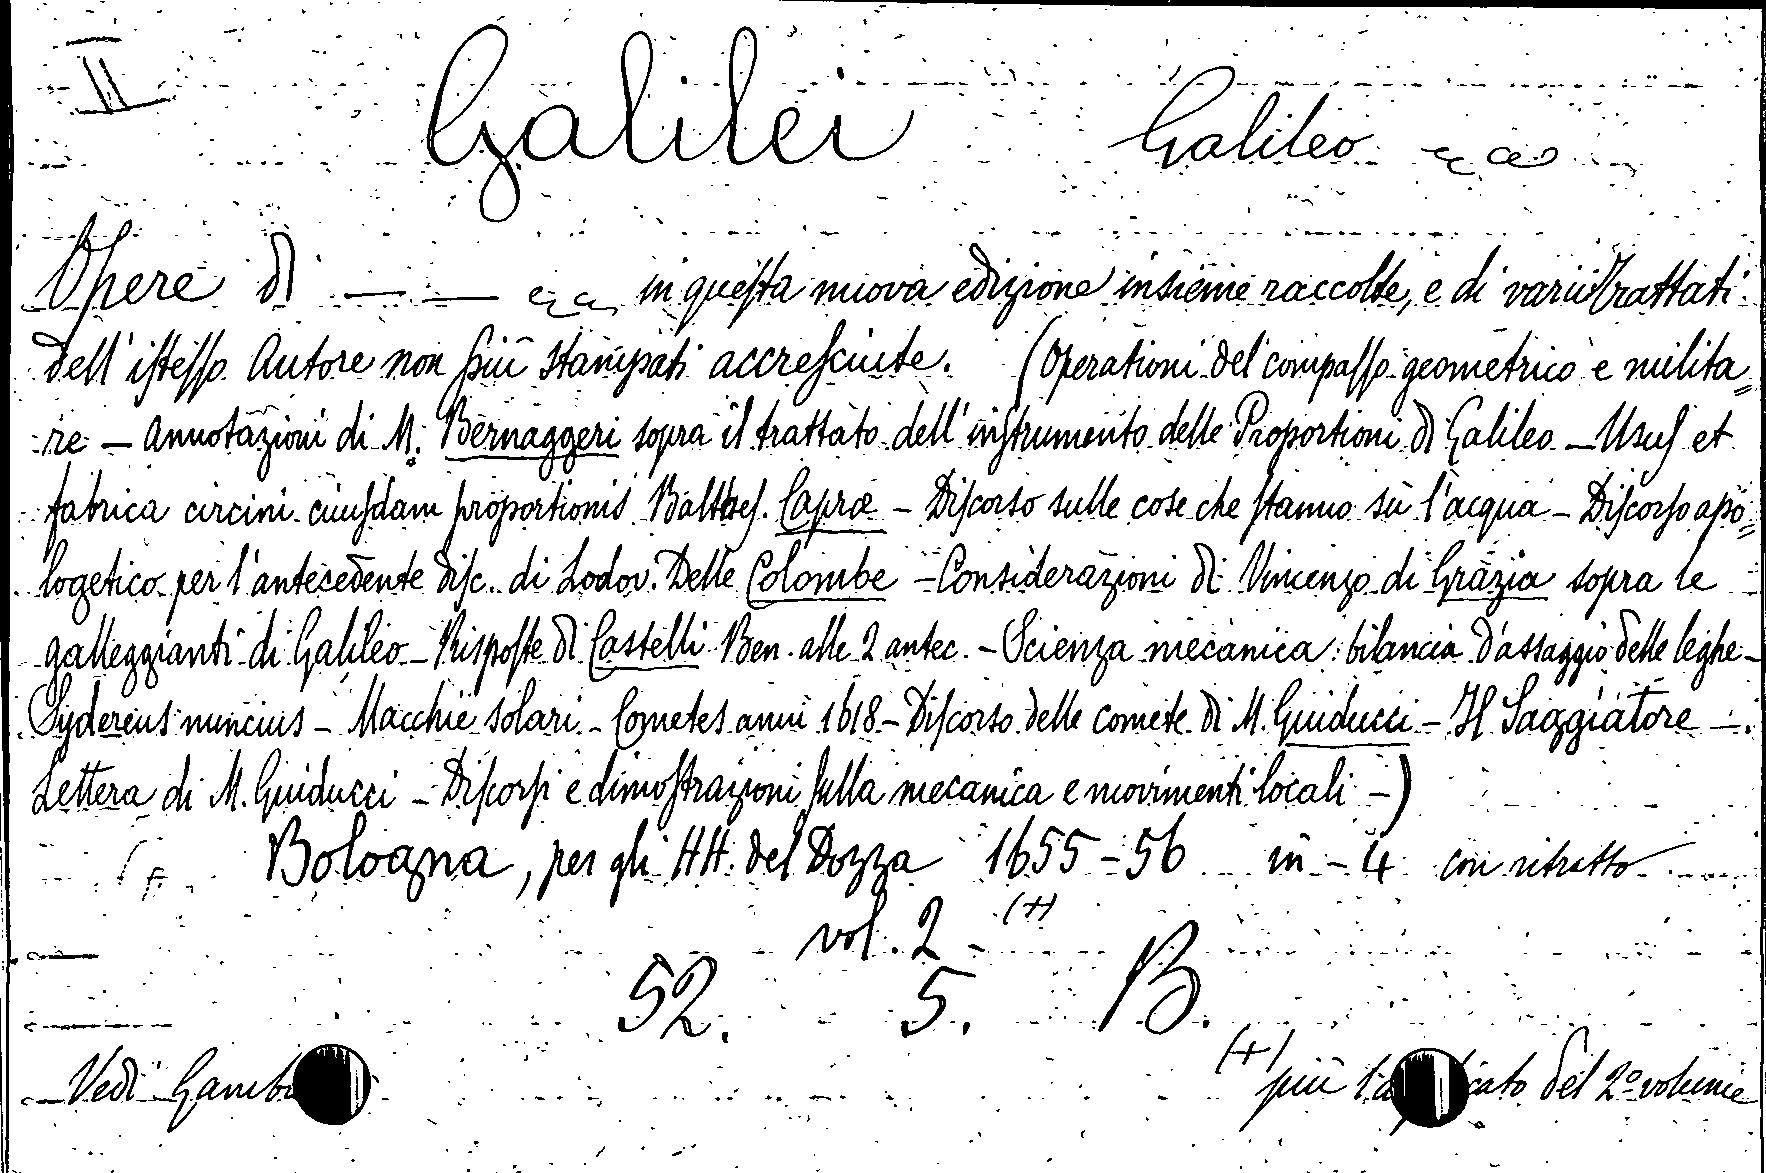 II Galilei Galileo
Opere di — — in questa nuova edizione insieme raccolte, e di varii Trattati
dell'istesso Autore non più stampati accresciute. (Operationi del compasso geometrico e milita=
re — Annotazioni di M. Bernaggeri sopra il trattato dell'instrumento delle Proportioni di Galileo — Usus et
fabrica circini cuiusdam proportionis Balthes. Capræ — Discorso sulle cose che stanno sù l'acqua — Discorso apo=
logetico per l'antecedente disc. di Lodov. Delle Colombe — Considerazioni di Vincenzo di Grazia sopra le
galleggianti di Galileo — Risposte di Castelli Ben. alle 2 antec. — Scienza mecanica: bilancia d'assaggio delle leghe —
Sydereus nuncius — Macchie solari — Cometes anni 1618 — Discorso delle comete di M. Guiducci — Il Saggiatore —
Lettera di M. Guiducci — Discorsi e dimostrazioni sulla mecanica e movimenti locali —)
Bologna, per gli HH. del Dozza 1655-56 in-4 con ritratto
vol. 2 - (+)
52. 5. B.
(+)
Vedi più del 2º volume